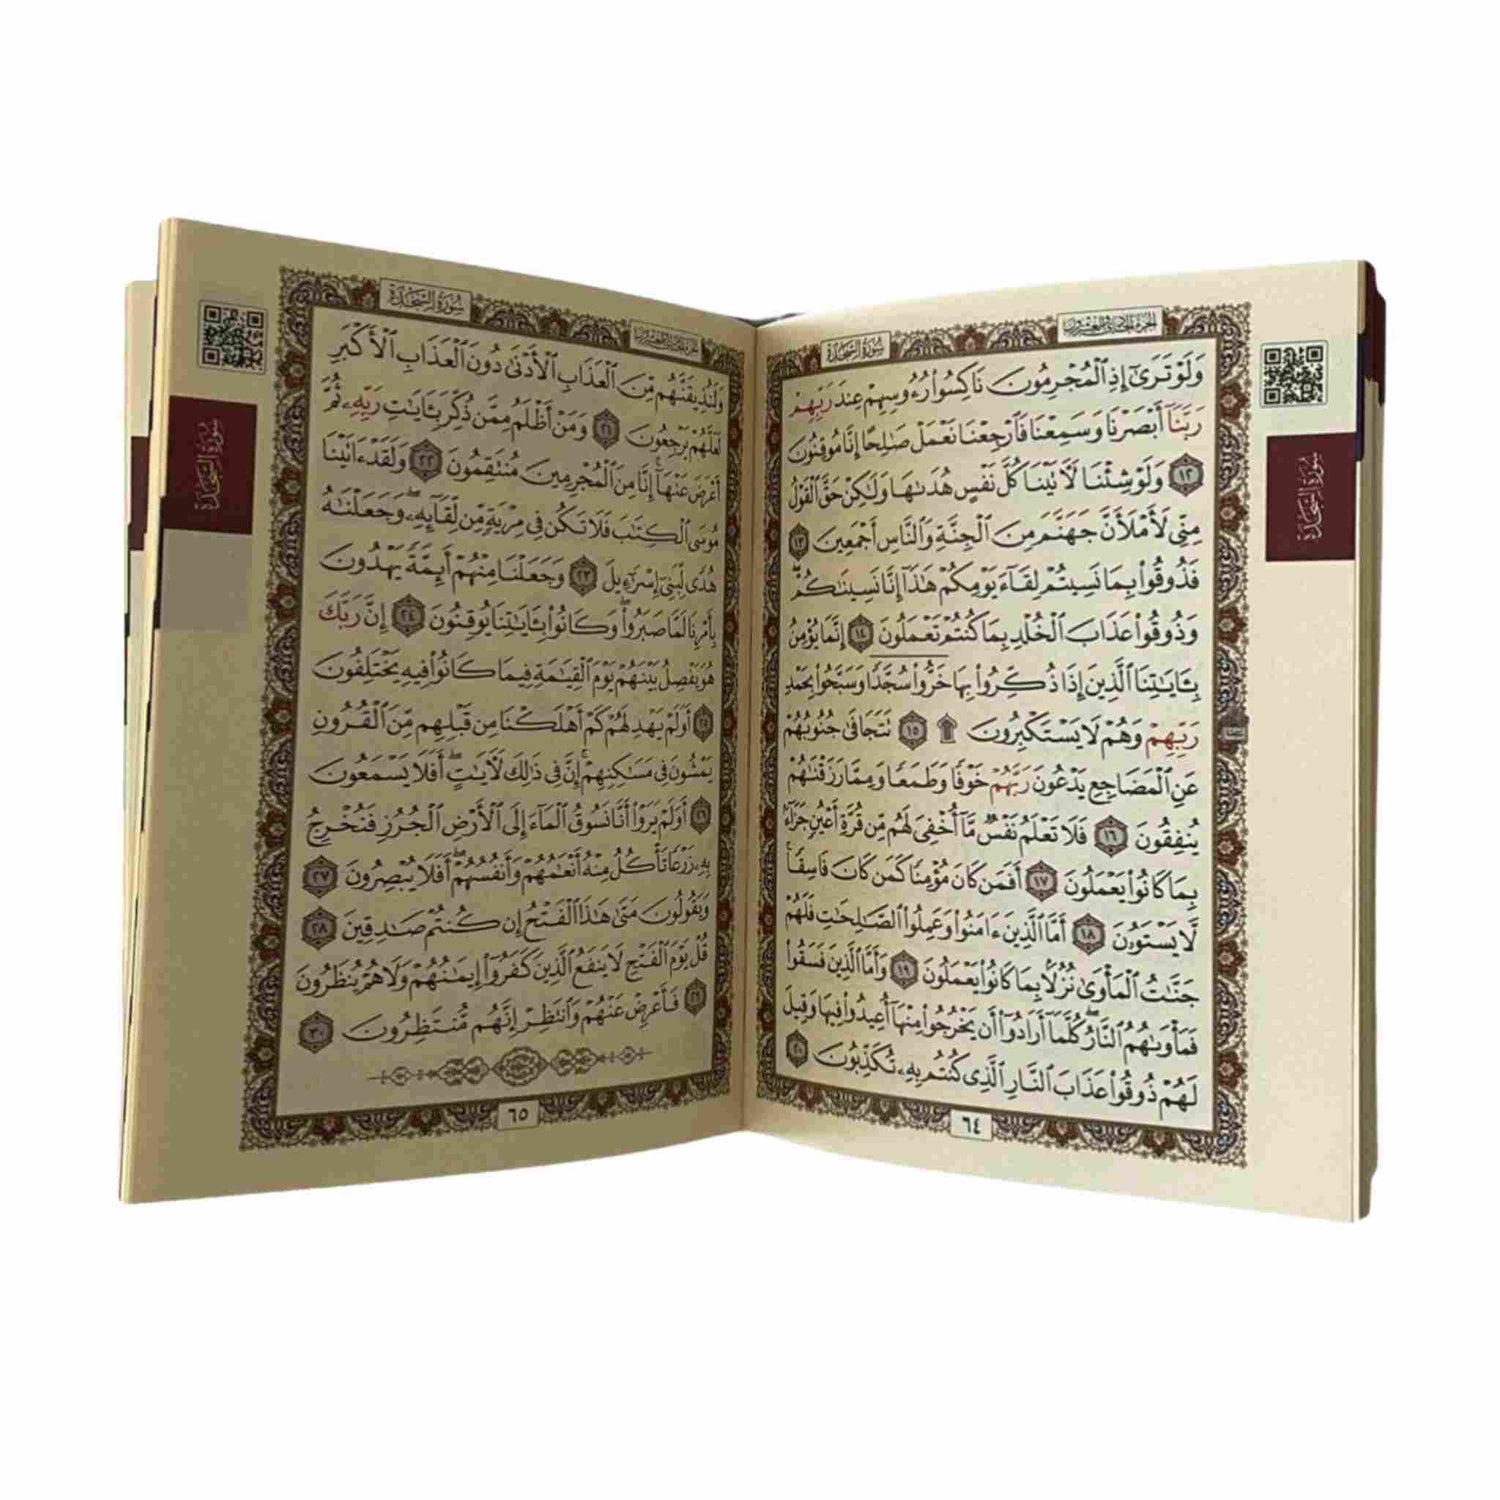 الجزء الحادي والعشرون
سورة السجدة
وَلَوْ تَرَىٰٓ إِذِ ٱلْمُجْرِمُونَ نَاكِسُوا۟ رُءُوسِهِمْ عِندَ رَبِّهِمْ
رَبَّنَآ أَبْصَرْنَا وَسَمِعْنَا فَٱرْجِعْنَا نَعْمَلْ صَـٰلِحًا إِنَّا مُوقِنُونَ
١٢ وَلَوْ شِئْنَا لَـَٔاتَيْنَا كُلَّ نَفْسٍ هُدَىٰهَا وَلَـٰكِنْ حَقَّ ٱلْقَوْلُ
مِنِّى لَأَمْلَأَنَّ جَهَنَّمَ مِنَ ٱلْجِنَّةِ وَٱلنَّاسِ أَجْمَعِينَ ١٣
فَذُوقُوا۟ بِمَا نَسِيتُمْ لِقَآءَ يَوْمِكُمْ هَـٰذَآ إِنَّا نَسِينَـٰكُمْ ۖ
وَذُوقُوا۟ عَذَابَ ٱلْخُلْدِ بِمَا كُنتُمْ تَعْمَلُونَ ١٤ إِنَّمَا يُؤْمِنُ
بِـَٔايَـٰتِنَا ٱلَّذِينَ إِذَا ذُكِّرُوا۟ بِهَا خَرُّوا۟ سُجَّدًا وَسَبَّحُوا۟ بِحَمْدِ
رَبِّهِمْ وَهُمْ لَا يَسْتَكْبِرُونَ ۩ ١٥ تَتَجَافَىٰ جُنُوبُهُمْ
عَنِ ٱلْمَضَاجِعِ يَدْعُونَ رَبَّهُمْ خَوْفًا وَطَمَعًا وَمِمَّا رَزَقْنَـٰهُمْ
يُنفِقُونَ ١٦ فَلَا تَعْلَمُ نَفْسٌ مَّآ أُخْفِىَ لَهُم مِّن قُرَّةِ أَعْيُنٍ جَزَآءًۢ
بِمَا كَانُوا۟ يَعْمَلُونَ ١٧ أَفَمَن كَانَ مُؤْمِنًا كَمَن كَانَ فَاسِقًا ۚ
لَّا يَسْتَوُۥنَ ١٨ أَمَّا ٱلَّذِينَ ءَامَنُوا۟ وَعَمِلُوا۟ ٱلصَّـٰلِحَـٰتِ فَلَهُمْ
جَنَّـٰتُ ٱلْمَأْوَىٰ نُزُلًۢا بِمَا كَانُوا۟ يَعْمَلُونَ ١٩ وَأَمَّا ٱلَّذِينَ فَسَقُوا۟
فَمَأْوَىٰهُمُ ٱلنَّارُ ۖ كُلَّمَآ أَرَادُوٓا۟ أَن يَخْرُجُوا۟ مِنْهَآ أُعِيدُوا۟ فِيهَا وَقِيلَ
لَهُمْ ذُوقُوا۟ عَذَابَ ٱلنَّارِ ٱلَّذِى كُنتُم بِهِۦ تُكَذِّبُونَ ٢٠
٦٤
سورة السجدة
الجزء الحادي والعشرون
سورة السجدة
وَلَنُذِيقَنَّهُم مِّنَ ٱلْعَذَابِ ٱلْأَدْنَىٰ دُونَ ٱلْعَذَابِ ٱلْأَكْبَرِ
لَعَلَّهُمْ يَرْجِعُونَ ٢١ وَمَنْ أَظْلَمُ مِمَّن ذُكِّرَ بِـَٔايَـٰتِ رَبِّهِۦ ثُمَّ
أَعْرَضَ عَنْهَآ ۚ إِنَّا مِنَ ٱلْمُجْرِمِينَ مُنتَقِمُونَ ٢٢ وَلَقَدْ ءَاتَيْنَا
مُوسَى ٱلْكِتَـٰبَ فَلَا تَكُن فِى مِرْيَةٍ مِّن لِّقَآئِهِۦ ۖ وَجَعَلْنَـٰهُ
هُدًى لِّبَنِىٓ إِسْرَٰٓءِيلَ ٢٣ وَجَعَلْنَا مِنْهُمْ أَئِمَّةً يَهْدُونَ
بِأَمْرِنَا لَمَّا صَبَرُوا۟ ۖ وَكَانُوا۟ بِـَٔايَـٰتِنَا يُوقِنُونَ ٢٤ إِنَّ رَبَّكَ
هُوَ يَفْصِلُ بَيْنَهُمْ يَوْمَ ٱلْقِيَـٰمَةِ فِيمَا كَانُوا۟ فِيهِ يَخْتَلِفُونَ
٢٥ أَوَلَمْ يَهْدِ لَهُمْ كَمْ أَهْلَكْنَا مِن قَبْلِهِم مِّنَ ٱلْقُرُونِ
يَمْشُونَ فِى مَسَـٰكِنِهِمْ ۚ إِنَّ فِى ذَٰلِكَ لَـَٔايَـٰتٍ ۖ أَفَلَا يَسْمَعُونَ
٢٦ أَوَلَمْ يَرَوْا۟ أَنَّا نَسُوقُ ٱلْمَآءَ إِلَى ٱلْأَرْضِ ٱلْجُرُزِ فَنُخْرِجُ
بِهِۦ زَرْعًا تَأْكُلُ مِنْهُ أَنْعَـٰمُهُمْ وَأَنفُسُهُمْ ۖ أَفَلَا يُبْصِرُونَ ٢٧
وَيَقُولُونَ مَتَىٰ هَـٰذَا ٱلْفَتْحُ إِن كُنتُمْ صَـٰدِقِينَ ٢٨
قُلْ يَوْمَ ٱلْفَتْحِ لَا يَنفَعُ ٱلَّذِينَ كَفَرُوٓا۟ إِيمَـٰنُهُمْ وَلَا هُمْ يُنظَرُونَ
٢٩ فَأَعْرِضْ عَنْهُمْ وَٱنتَظِرْ إِنَّهُم مُّنتَظِرُونَ ٣٠
٦٥
سورة السجدة